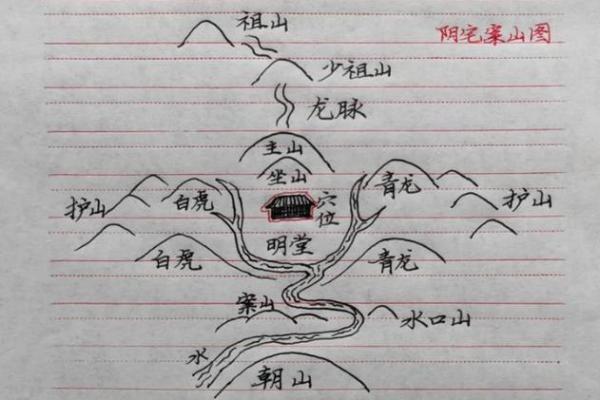 祖山
阴宅案山图
少祖山
龙脉
主山
坐山
青龙
护山
白虎
穴位
护山
明堂
白虎
青龙
案山
水口山
水
朝山